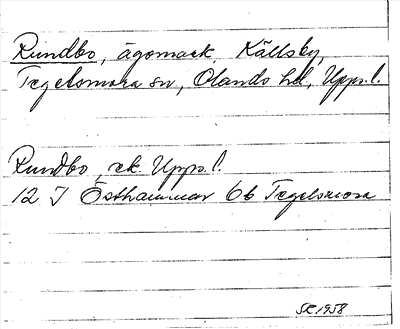 Rundbo, ägomark, Källsby,
Tegelsmora sn, Olands hd, Upps. l.
Rundbo, ek. Upps. l.
12 I Östhammar 6b Tegelsmora
SR 1958